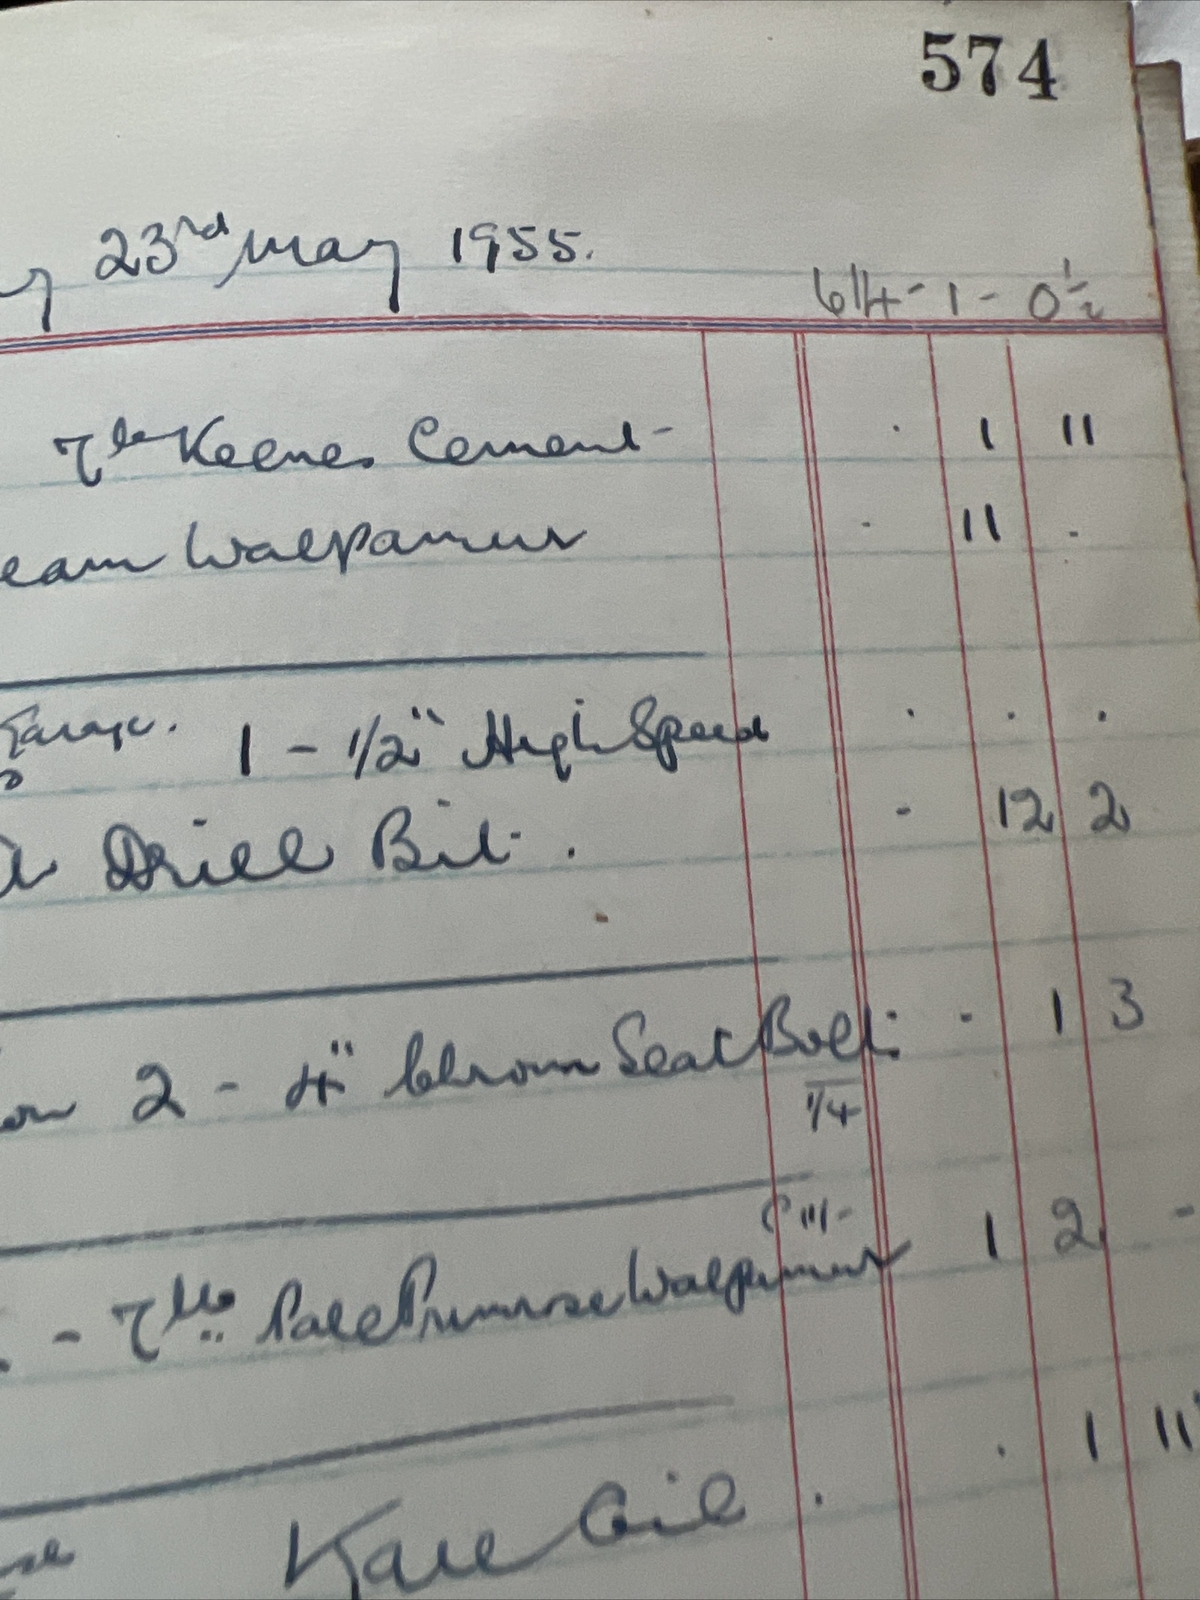 574
23rd May 1955.
614 - 1 - 0½
7lb Keenes Cement 1 11
eam Walpamur 11
Garage. 1 - 1/2" High Speed
Drill Bit. - 12 2
2 - 4" Chrom Seat Bolt. - 1 3
1/4
@ 11/-
- 7lbs Pale Primrose Walpamur 1 2 -
1 11
Oil